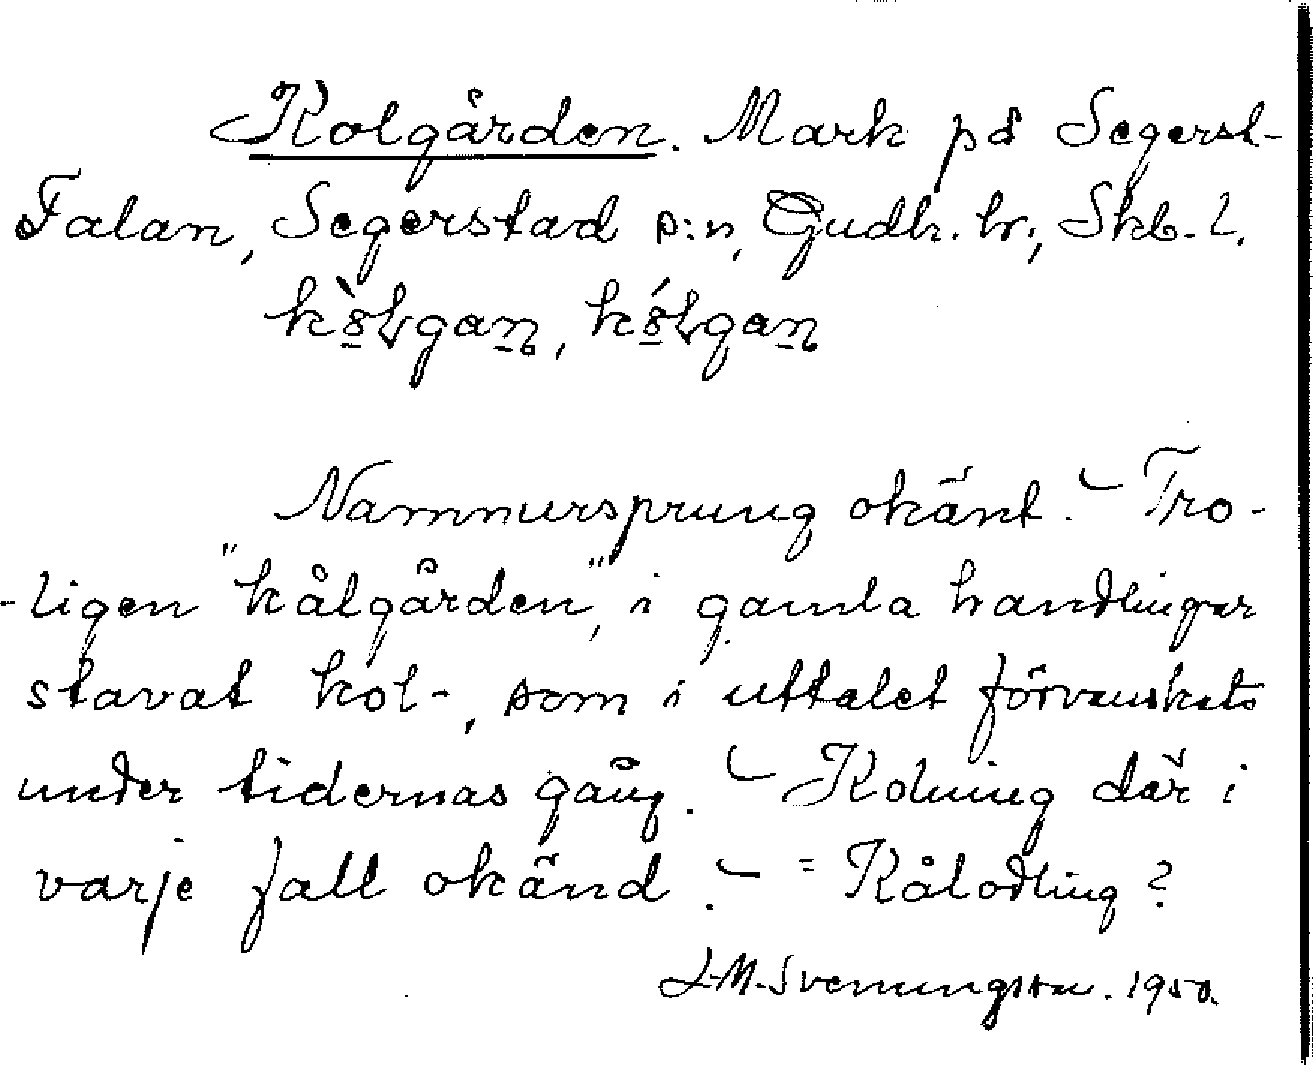 Kolgården. Mark på Segerst-
Falan, Segerstad s:n, Gudh. hr., Skb. l.
Namnursprung okänt. – Tro-
-ligen "kålgården", i gamla handlingar
stavat kol-, som i uttalet förvanskats
under tidernas gång. – Kolning där i
varje fall okänd. – = Kålodling?
L.M. Svenungsson. 1950.